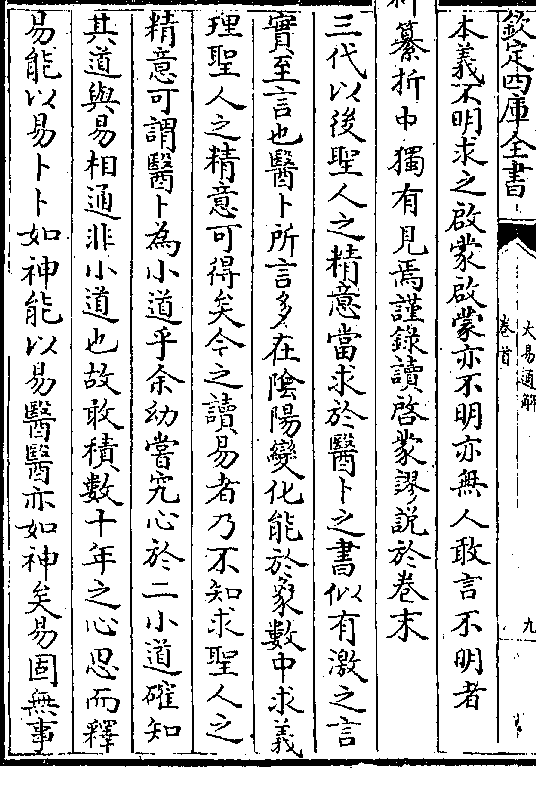 欽定四庫全書
大易通解
卷首
九
本義不明求之啟蒙啟蒙亦不明亦無人敢言不明者
新纂折中獨有見焉謹錄讀啓蒙謬說於卷末
三代以後聖人之精意當求於醫卜之書似有激之言
實至言也醫卜所言多在陰陽變化能於象數中求義
理聖人之精意可得矣今之讀易者乃不知求聖人之
精意可謂醫卜為小道乎余幼嘗究心於二小道確知
其道與易相通非小道也故敢積數十年之心思而釋
易能以易卜卜如神能以易醫醫亦如神矣易固無事